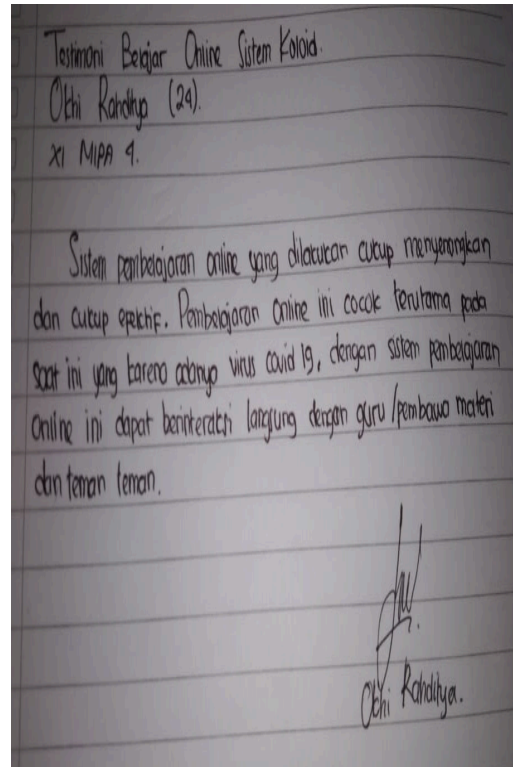 Testimoni Belajar Online Sistem Koloid.
Okhi Rahditya (24).
XI MIPA 4.
Sistem pembelajaran online yang dilakukan cukup menyenangkan
dan cukup efektif. Pembelajaran Online ini cocok terutama pada
saat ini yang karena adanya virus covid 19, dengan sistem pembelajaran
Online ini dapat berinteraksi langsung dengan guru/pembawa materi
dan teman teman.
Okhi Rahditya.